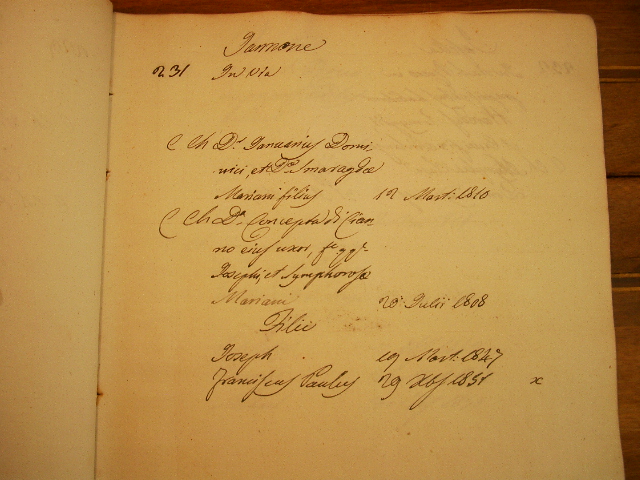 Iannone
231 In Via
C Ch D.r Ianuarius Domi
nici, et D.æ Smaragdæ
Mariani filius 12 Mart: 1810
C Ch D.a Concepta di Cian
no eius uxor, f.
Iosephi, et Symphorosæ
Mariani 20 Iulii 1808
Filii
Ioseph 19 Mart: 1847
Franciscus Paulus 29 Xbs 1851 x